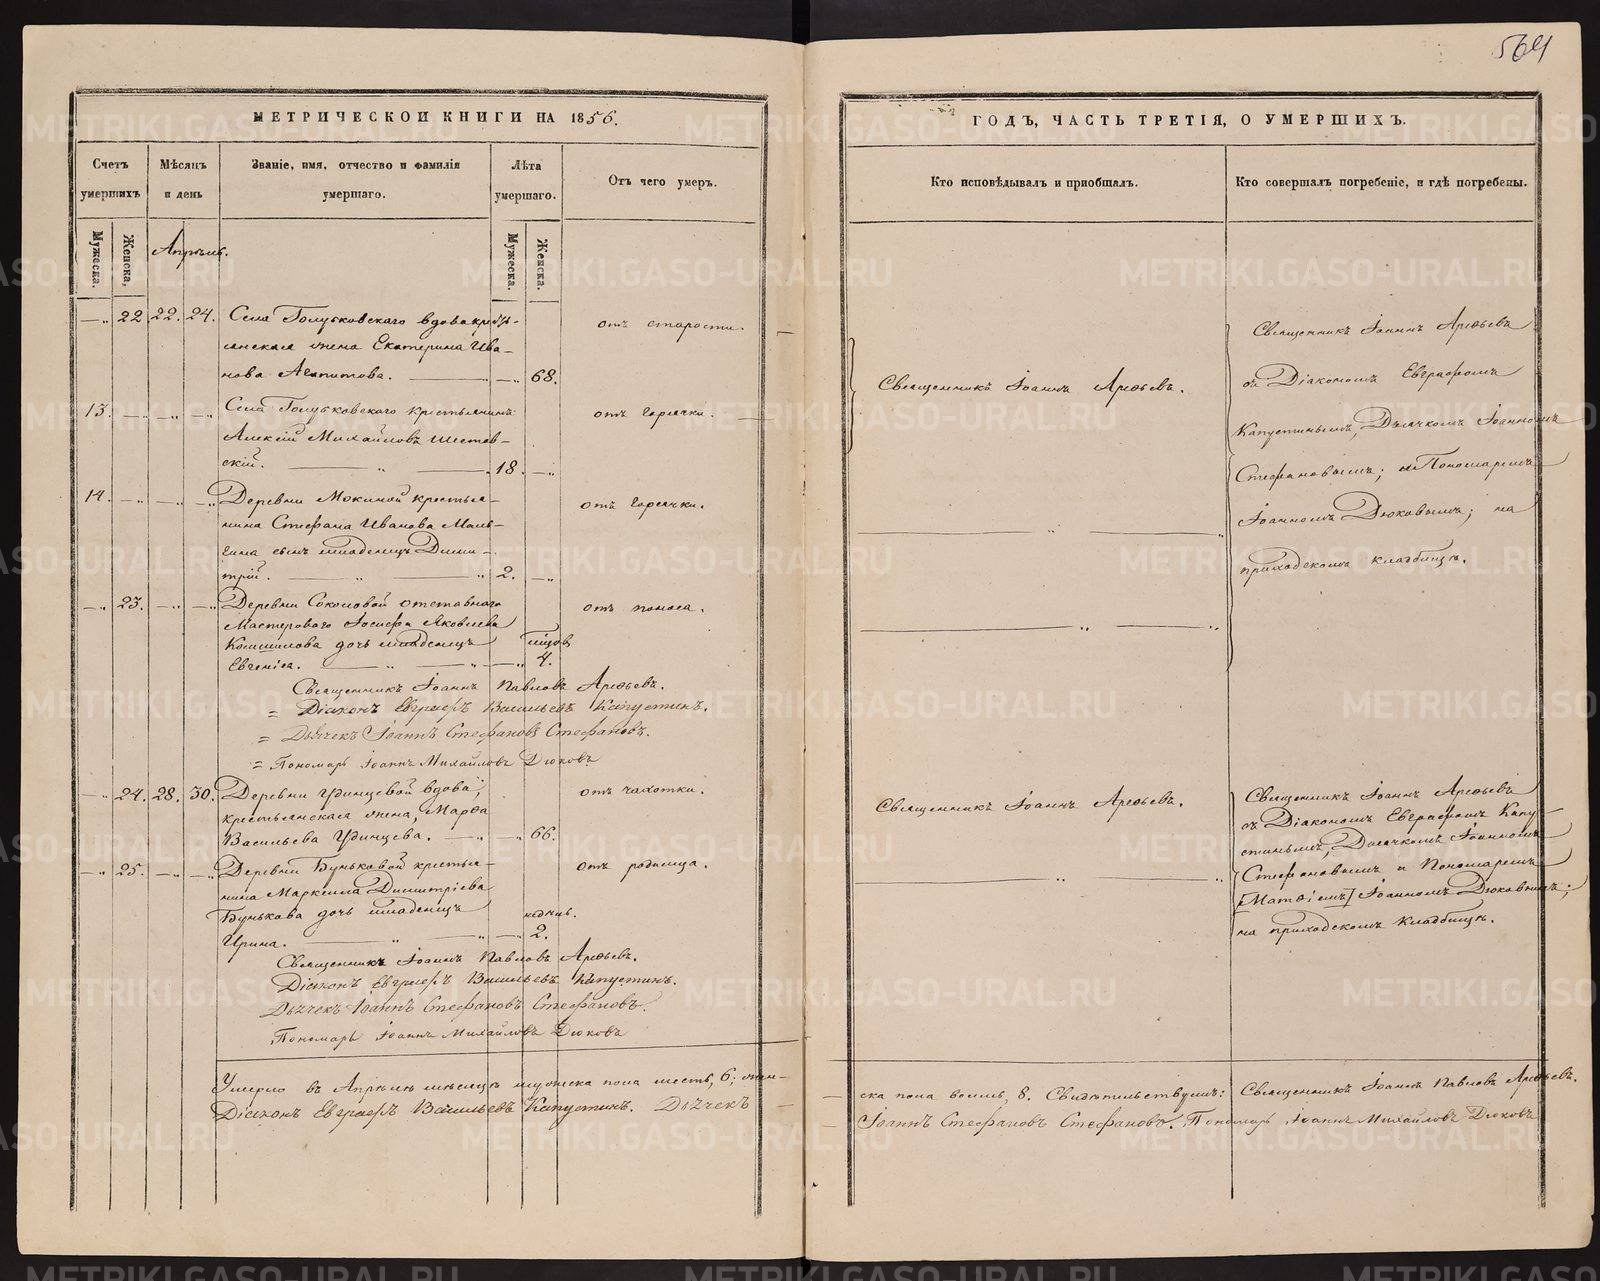 564
МЕТРИЧЕСКОЙ КНИГИ НА 1856.
Счетъ умершихъ
Мѣсяцъ и день
Званіе, имя, отчество и фамилія умершаго.
Лѣта умершаго.
Отъ чего умеръ.
Мужеска.
Женска.
Апрѣль.
Мужеска.
Женска.
— 22 22. 24. Села Голубковскаго вдова кресть- отъ старости.
янская жена Екатерина Ива-
нова Агапитова. — 68.
13. — Села Голубковскаго крестьянинъ отъ горячки.
Алексій Михайловъ Шестов-
скій. 18. —
14. — Деревни Мокиной крестья- отъ горячки.
нина Стефана Иванова Маль-
гина сынъ младенецъ Дими-
трій. 2. —
— 23. — Деревни Соколовой отставнаго отъ поноса.
Мастерового Іосифа Яковлева
Комшилова дочь младенецъ
Евгенія. — 4.
Священникъ Іоаннъ Павловъ Арефьевъ.
= Діаконъ Евграфъ Васильевъ Капустинъ.
= Дьячекъ Іоаннъ Стефановъ Стефановъ.
= Пономарь Іоаннъ Михайловъ Дюковъ
— 24. 28. 30. Деревни Удинцевой вдова, отъ чахотки.
крестьянская жена, Марфа
Васильева Удинцева. — 66.
— 25. — Деревни Буньковой крестья- отъ родимца.
нина Маркелла Димитріева
Бунькова дочь младенецъ недѣль.
Ирина. — 2.
Священникъ Іоаннъ Павловъ Арефьевъ.
Діаконъ Евграфъ Васильевъ Капустинъ.
Дьячекъ Іоаннъ Стефановъ Стефановъ.
Пономарь Іоаннъ Михайловъ Дюковъ
Умерло въ Апрѣлѣ мѣсяцѣ мужеска пола шесть, 6; жен-
Діаконъ Евграфъ Васильевъ Капустинъ. Дьячекъ
ГОДЪ, ЧАСТЬ ТРЕТІЯ, О УМЕРШИХЪ.
Кто исповѣдывалъ и приобщалъ.
Кто совершалъ погребеніе, и гдѣ погребены.
Священникъ Іоаннъ Арефьевъ.
Священникъ Іоаннъ Арефьевъ
съ Діакономъ Евграфомъ
Капустинымъ, Дьячкомъ Іоанномъ
Стефановымъ; и Пономаремъ
Іоанномъ Дюковымъ; на
приходскомъ кладбищѣ.
Священникъ Іоаннъ Арефьевъ.
Священникъ Іоаннъ Арефьевъ
съ Діакономъ Евграфомъ Капу-
стинымъ, Дьячкомъ Іоанномъ
Стефановымъ и Пономаремъ
[Матѳіемъ] Іоанномъ Дюковымъ;
на приходскомъ кладбищѣ.
ска пола восемь, 8. Свидѣтельствуемъ: Священникъ Іоаннъ Павловъ Арефьевъ.
Іоаннъ Стефановъ Стефановъ. Пономарь Іоаннъ Михайловъ Дюковъ
METRIKI.GASO-URAL.RU